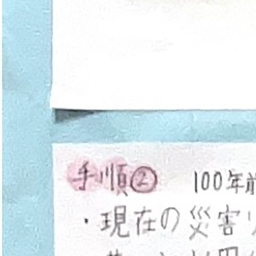 手順② 100年前
・現在の災害リ